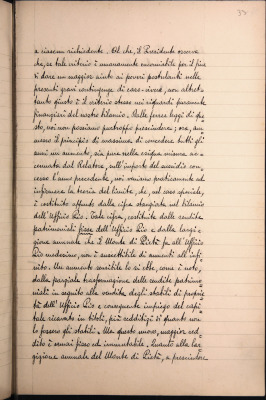 37
a ciascun richiedente. Al che, il Presidente osserva
che, se tale criterio è umanamente encomiabile per il fine
di dare un maggior aiuto ai poveri postulanti nelle
presenti gravi contingenze di caro-viveri, non altret-
tanto giusto è il criterio stesso nei riguardi puramente
finanziari del nostro bilancio. Dalle ferree leggi di que-
sto, noi non possiamo purtroppo prescindere; ora, am-
messo il principio di massima di concedere tutti gli
anni un aumento, sia pure nella esigua misura ac-
cennata dal Relatore, sull'importo del sussidio con-
cesso l'anno precedente, noi veniamo praticamente ad
infirmare la teoria del limite, che, nel caso speciale,
è costituito appunto dalla cifra stanziata nel bilancio
dell'Ufficio Pio. Tale cifra, costituita dalle rendite
patrimoniali fisse dell'Ufficio Pio e dalla largi-
zione annuale che il Monte di Pietà fa all'Ufficio
Pio medesimo, non è suscettibile di aumenti all'infi-
nito. Un aumento sensibile lo si ebbe, come è noto,
dalla parziale trasformazione delle rendite patrimo-
niali in seguito alla vendita degli stabili di proprie-
tà dell'Ufficio Pio e conseguente impiego del capi-
tale ricavato in titoli, più redditizi di quanto non
lo fossero gli stabili. Ma questo nuovo, maggior red-
dito è ormai fisso ed immutabile. Quanto alla lar-
gizione annuale del Monte di Pietà, a prescindere